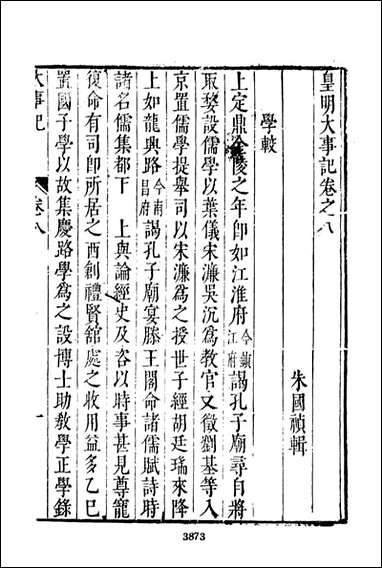 皇明大事記卷之八
朱國禎輯
學較
上定鼎金陵之年即如江淮府今鎮江府謁孔子廟尋自將
取婺設儒學以葉儀宋濂吳沉為教官又徵劉基等入
京置儒學提舉司以宋濂為之授世子經胡廷瑞來降
上如龍興路今南昌府謁孔子廟宴滕王閣命諸儒賦詩時
諸名儒集都下　上與論經史及咨以時事甚見尊寵
復命有司即所居之西創禮賢舘處之收用益多乙巳
置國子學以故集慶路學為之設博士助教學正學錄
大事記
卷八
一
3873